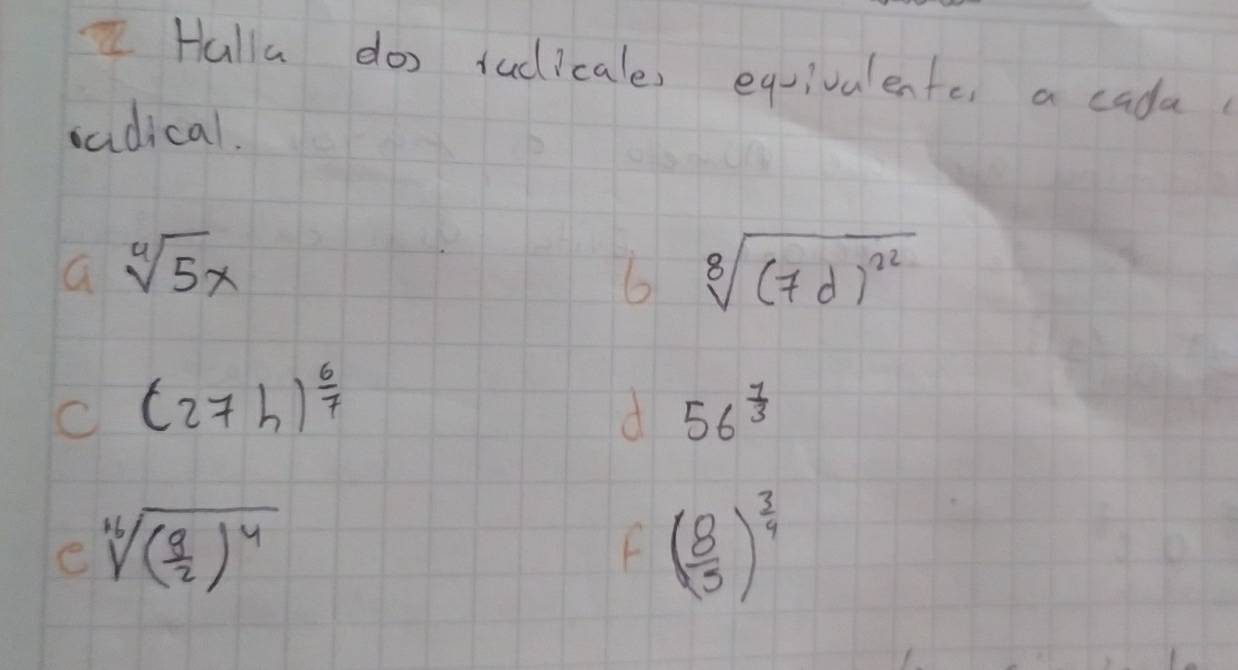 2 Halla dos radicales equivalentes a cada
radical.
a ⁴√5x b ⁸√(7d)²²
c (27h)^(6/7) d 56^(7/3)
e ¹⁶√(9/2)⁴ f (8/5)^(3/4)